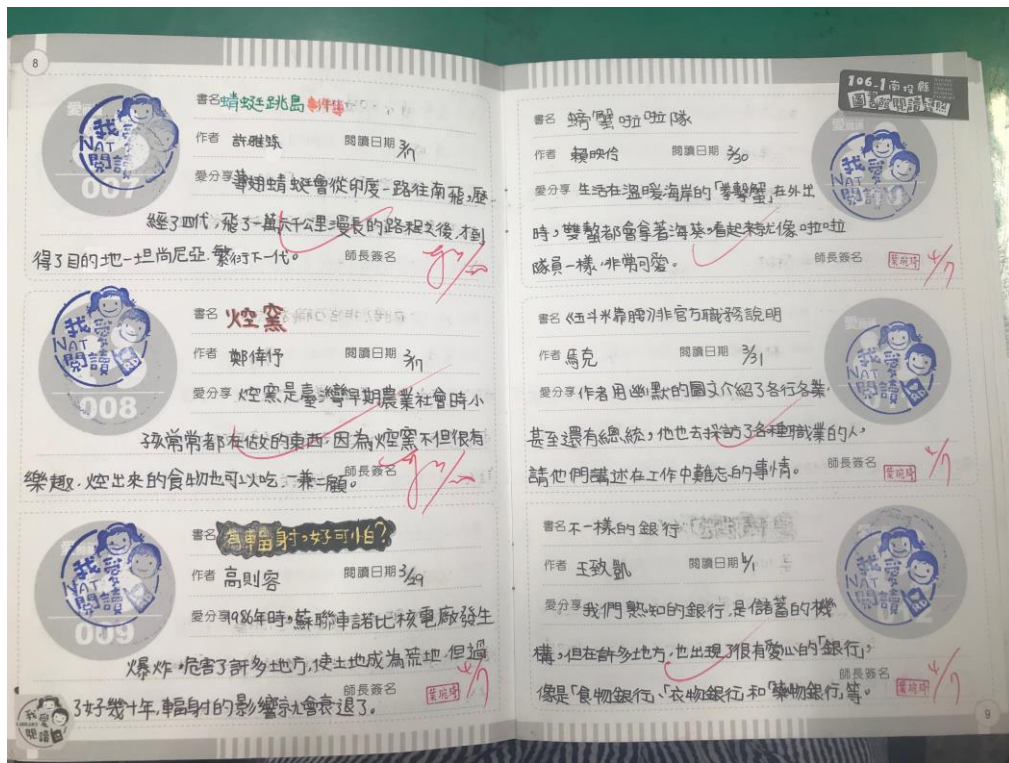 8
書名 蜻蜓跳島
作者 許雅筑 閱讀日期 3/7
愛分享 薄翅蜻蜓會從印度一路往南飛,歷
經了四代,飛了一萬六千公里漫長的路程之後,才到
得了目的地-坦尚尼亞.繁衍下一代。 師長簽名
007
我愛閱讀
NAT
書名 焢窯
作者 鄭偉伃 閱讀日期 3/7
愛分享 焢窯是臺灣早期農業社會時小
孩常常都在做的東西,因為焢窯不但很有
樂趣.焢出來的食物也可以吃,一兼二顧。 師長簽名
008
我愛閱讀
NAT
RD
書名 為輻射,好可怕?
作者 高則容 閱讀日期 3/29
愛分享 1986年時,蘇聯車諾比核電廠發生
爆炸,危害了許多地方,使土地成為荒地,但過
了好幾十年,輻射的影響就會衰退了。 師長簽名 葉琬琦 4/7
009
我愛閱讀
NAT
RD
我愛閱讀
106_1南投縣
圖書館閱讀護照
書名 螃蟹啦啦隊
作者 賴映伶 閱讀日期 3/30
愛分享 生活在溫暖海岸的「拳擊蟹」在外出
時,雙螯都會拿著海葵,看起來就像啦啦
隊員一樣,非常可愛。 師長簽名 葉琬琦 4/7
我愛閱讀
NAT
書名 《五斗米靠腰》非官方職務說明
作者 馬克 閱讀日期 3/31
愛分享 作者用幽默的圖文介紹了各行各業.
甚至還有總統,他也去採訪了各種職業的人,
請他們講述在工作中難忘的事情。 師長簽名 葉琬琦 4/7
我愛閱讀
NAT
RD
書名 不一樣的銀行
作者 王致凱 閱讀日期 4/1
愛分享 我們熟知的銀行,是儲蓄的機
構,但在許多地方,也出現了很有愛心的「銀行」,
像是「食物銀行」、「衣物銀行」和「藥物銀行」等。 師長簽名 葉琬琦 4/7
我愛閱讀
NAT
RD
9